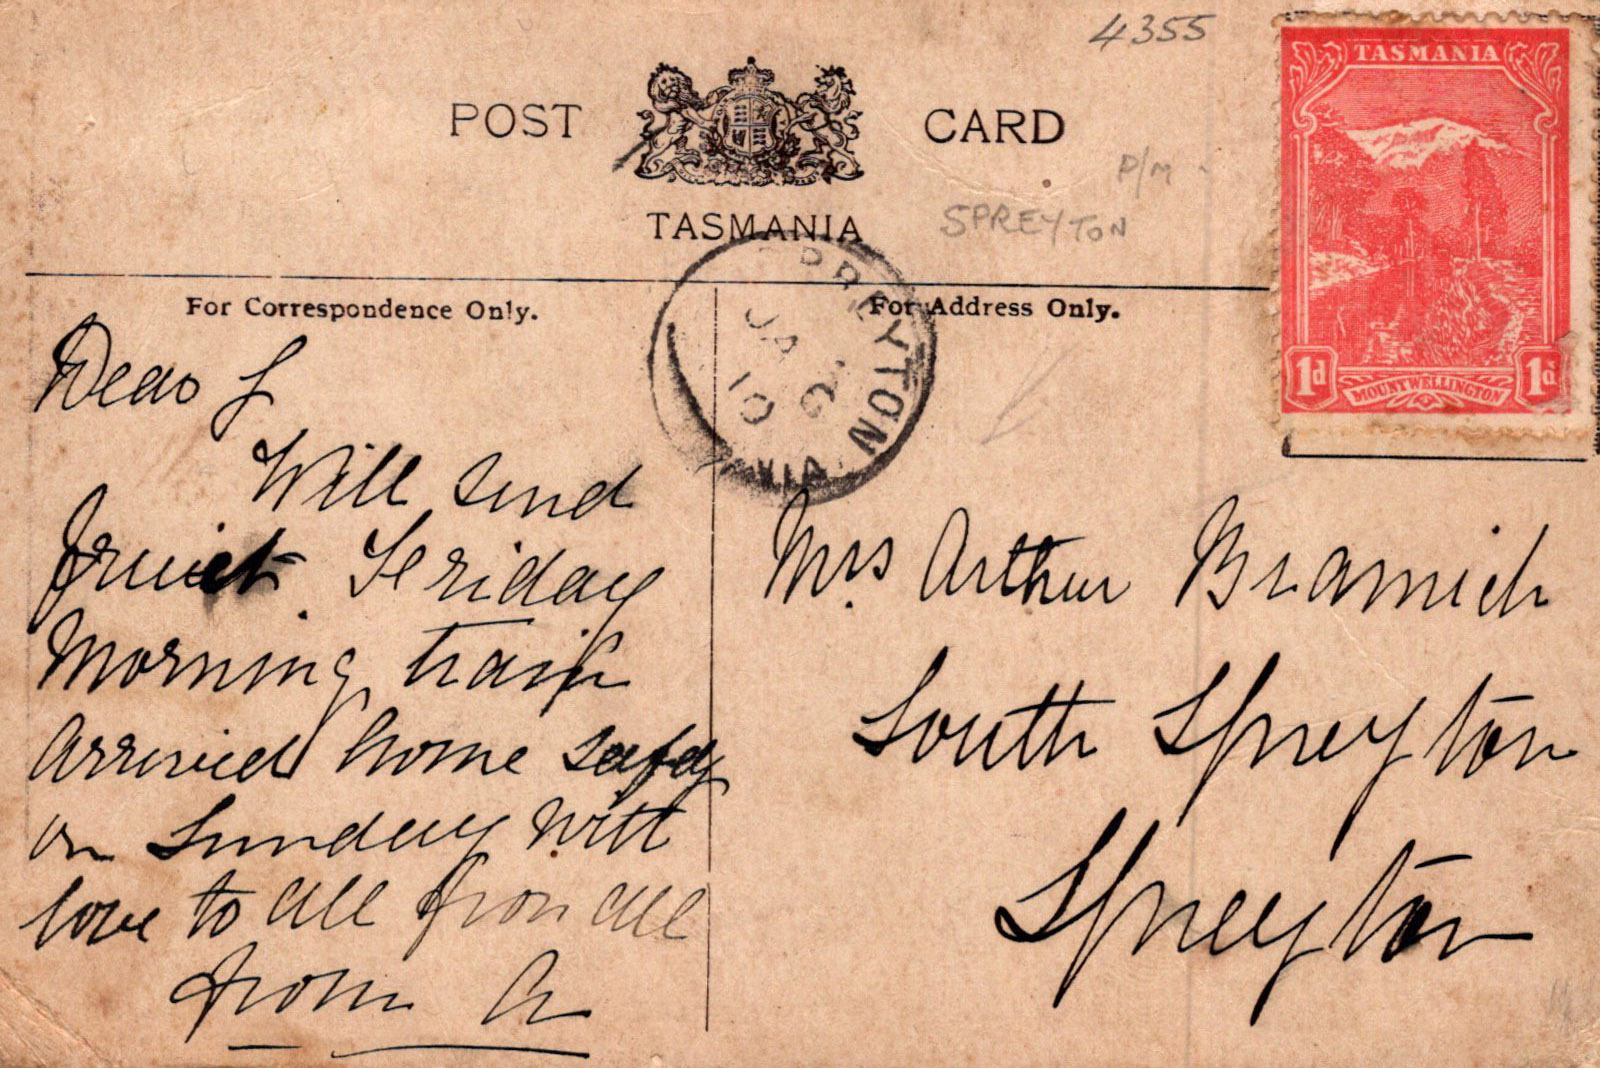 4355
POST CARD
TASMANIA
P/M
SPREYTON
TASMANIA
1d 1d
MOUNT WELLINGTON
SPREYTON
JA 6
10
For Correspondence Only.
For Address Only.
Dear L
Will send
fruit Friday
Morning train
Arrived home safely
on Sunday with
love to all from all
from A
Mrs Arthur Bramich
South Spreyton
Spreyton